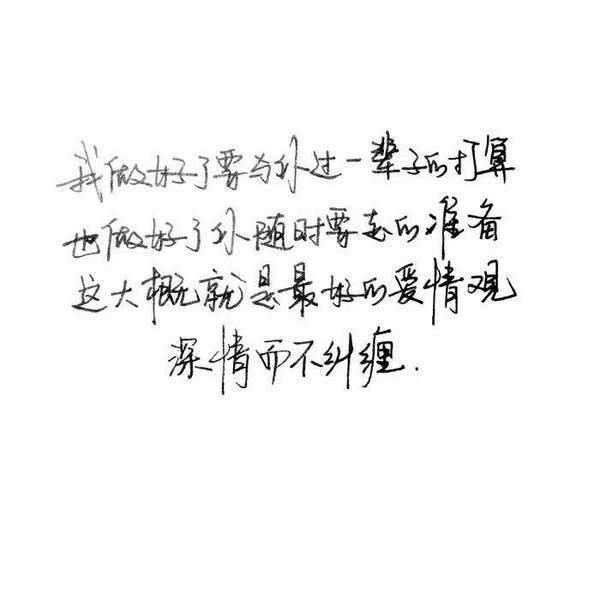 我做好了要与你过一辈子的打算
也做好了你随时要走的准备
这大概就是最好的爱情观
深情而不纠缠.